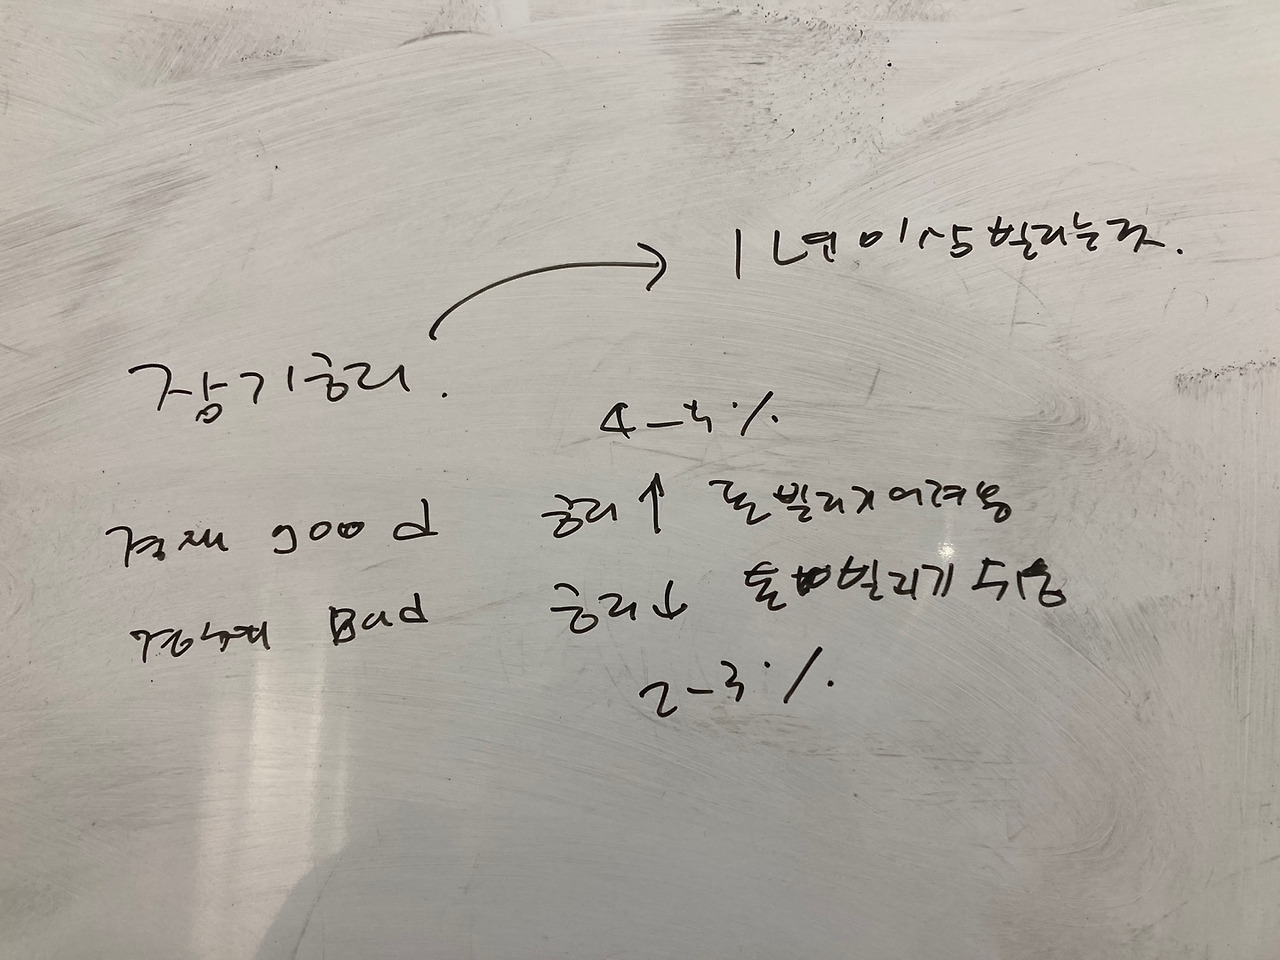 1년 이상 빌리는 것.
장기금리.
4-5%
경제 good 금리↑ 돈 빌리기 어려움
경제 Bad 금리↓ 돈 빌리기 쉬움
2-3%